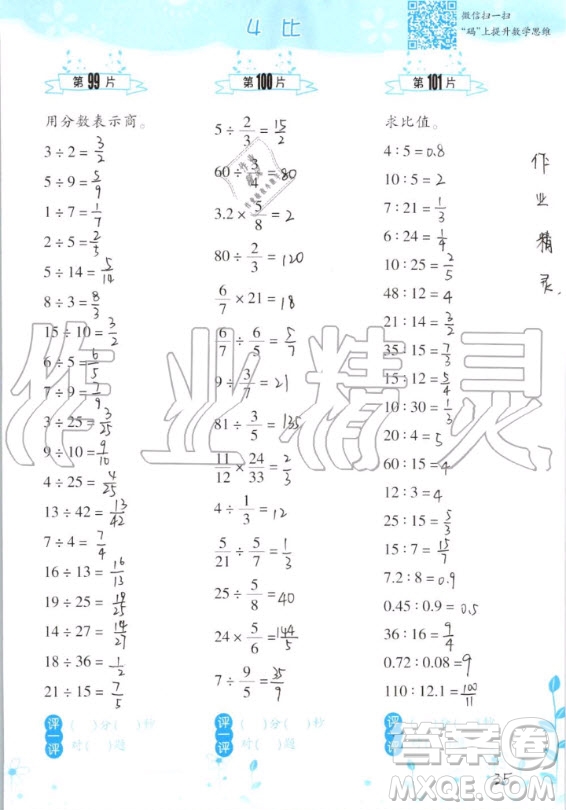 4 比
微信扫一扫
“码”上提升数学思维
第99片
用分数表示商。
3÷2=3/2
5÷9=5/9
1÷7=1/7
2÷5=2/5
5÷14=5/14
8÷3=8/3
15÷10=3/2
6÷5=6/5
7÷9=7/9
3÷25=3/25
9÷10=9/10
4÷25=4/25
13÷42=13/42
7÷4=7/4
16÷13=16/13
19÷25=19/25
14÷27=14/27
18÷36=1/2
21÷15=7/5
评一评
( )分( )秒
对( )题
第100片
5÷2/3=15/2
60÷3/4=80
3.2×5/8=2
80÷2/3=120
6/7×21=18
6/7÷6/5=5/7
9÷3/7=21
81÷3/5=135
11/12×24/33=2/3
4÷1/3=12
5/21÷5/7=1/3
25÷5/8=40
24×5/6=144/5
7÷9/5=35/9
评一评
( )分( )秒
对( )题
第101片
求比值。
4:5=0.8
10:5=2
7:21=1/3
6:24=1/4
10:25=2/5
48:12=4
21:14=3/2
35:15=7/3
15:12=5/4
10:30=1/3
20:4=5
60:15=4
12:3=4
25:15=5/3
15:7=15/7
7.2:8=0.9
0.45:0.9=0.5
36:16=9/4
0.72:0.08=9
110:12.1=100/11
作业精灵
评一评
作业精灵
答案圈
MXQE.COM
35